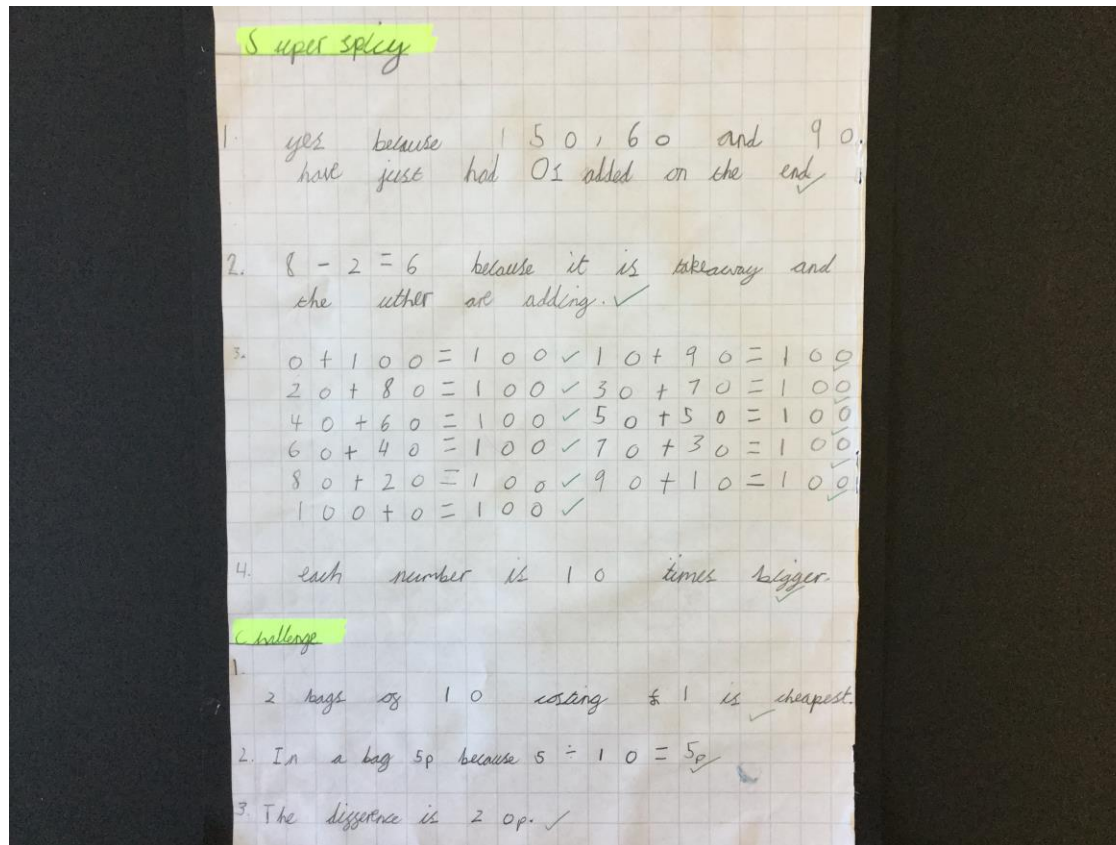 Super spicy
1. yes because 150, 60 and 90.
have just had 0s added on the end
2. 8 - 2 = 6 because it is takeaway and
the uther are adding. ✓
3. 0 + 100 = 100 ✓ 10 + 90 = 100 ✓
20 + 80 = 100 ✓ 30 + 70 = 100 ✓
40 + 60 = 100 ✓ 50 + 50 = 100 ✓
60 + 40 = 100 ✓ 70 + 30 = 100 ✓
80 + 20 = 100 ✓ 90 + 10 = 100 ✓
100 + 0 = 100 ✓
4. each number is 10 times bigger. ✓
Challenge
1.
2 bags of 10 costing £1 is cheapest. ✓
2. In a bag 5p because 5 ÷ 10 = 5p ✓
3. The difference is 20p. ✓